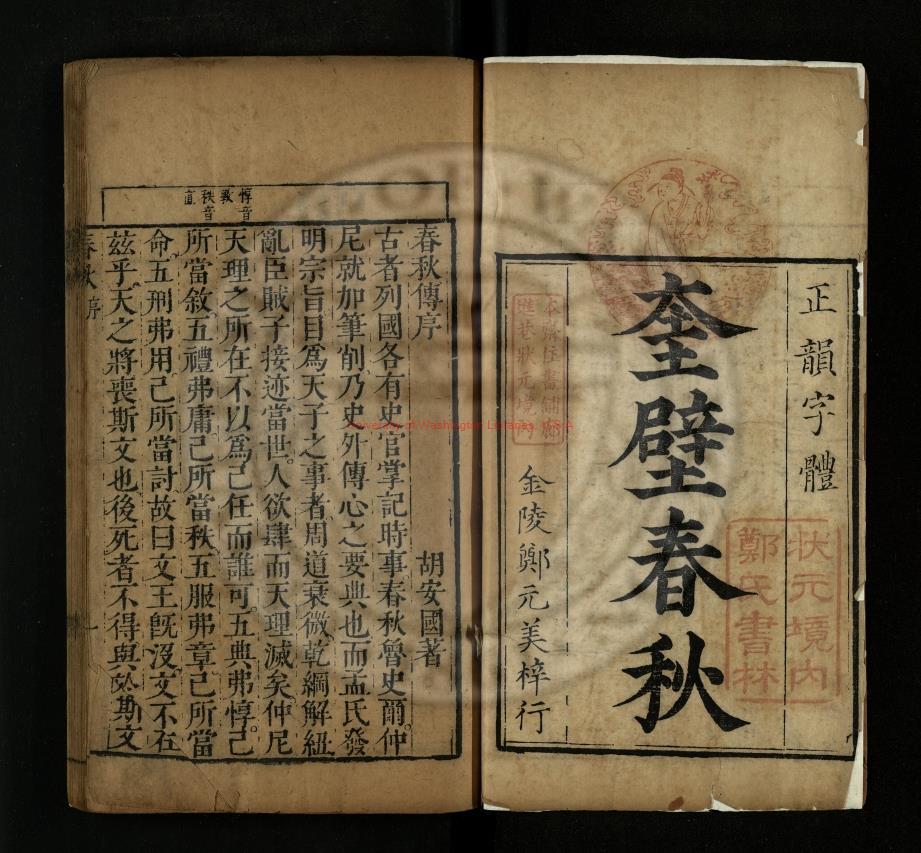 正韻字體
奎壁春秋
金陵鄭元美梓行
狀元境內
鄭氏書林
惇音
敦
秩音
直
春秋傳序
胡安國著
古者列國各有史官掌記時事春秋魯史爾仲
尼就加筆削乃史外傳心之要典也而孟氏發
明宗旨目爲天子之事者周道衰微乾綱解紐
亂臣賊子接迹當世人欲肆而天理滅矣仲尼
天理之所在不以爲己任而誰可五典弗惇己
所當敘五禮弗庸己所當秩五服弗章己所當
命五刑弗用己所當討故曰文王旣沒文不在
茲乎天之將喪斯文也後死者不得與於斯文
春秋序
一
University of Washington Libraries, USA